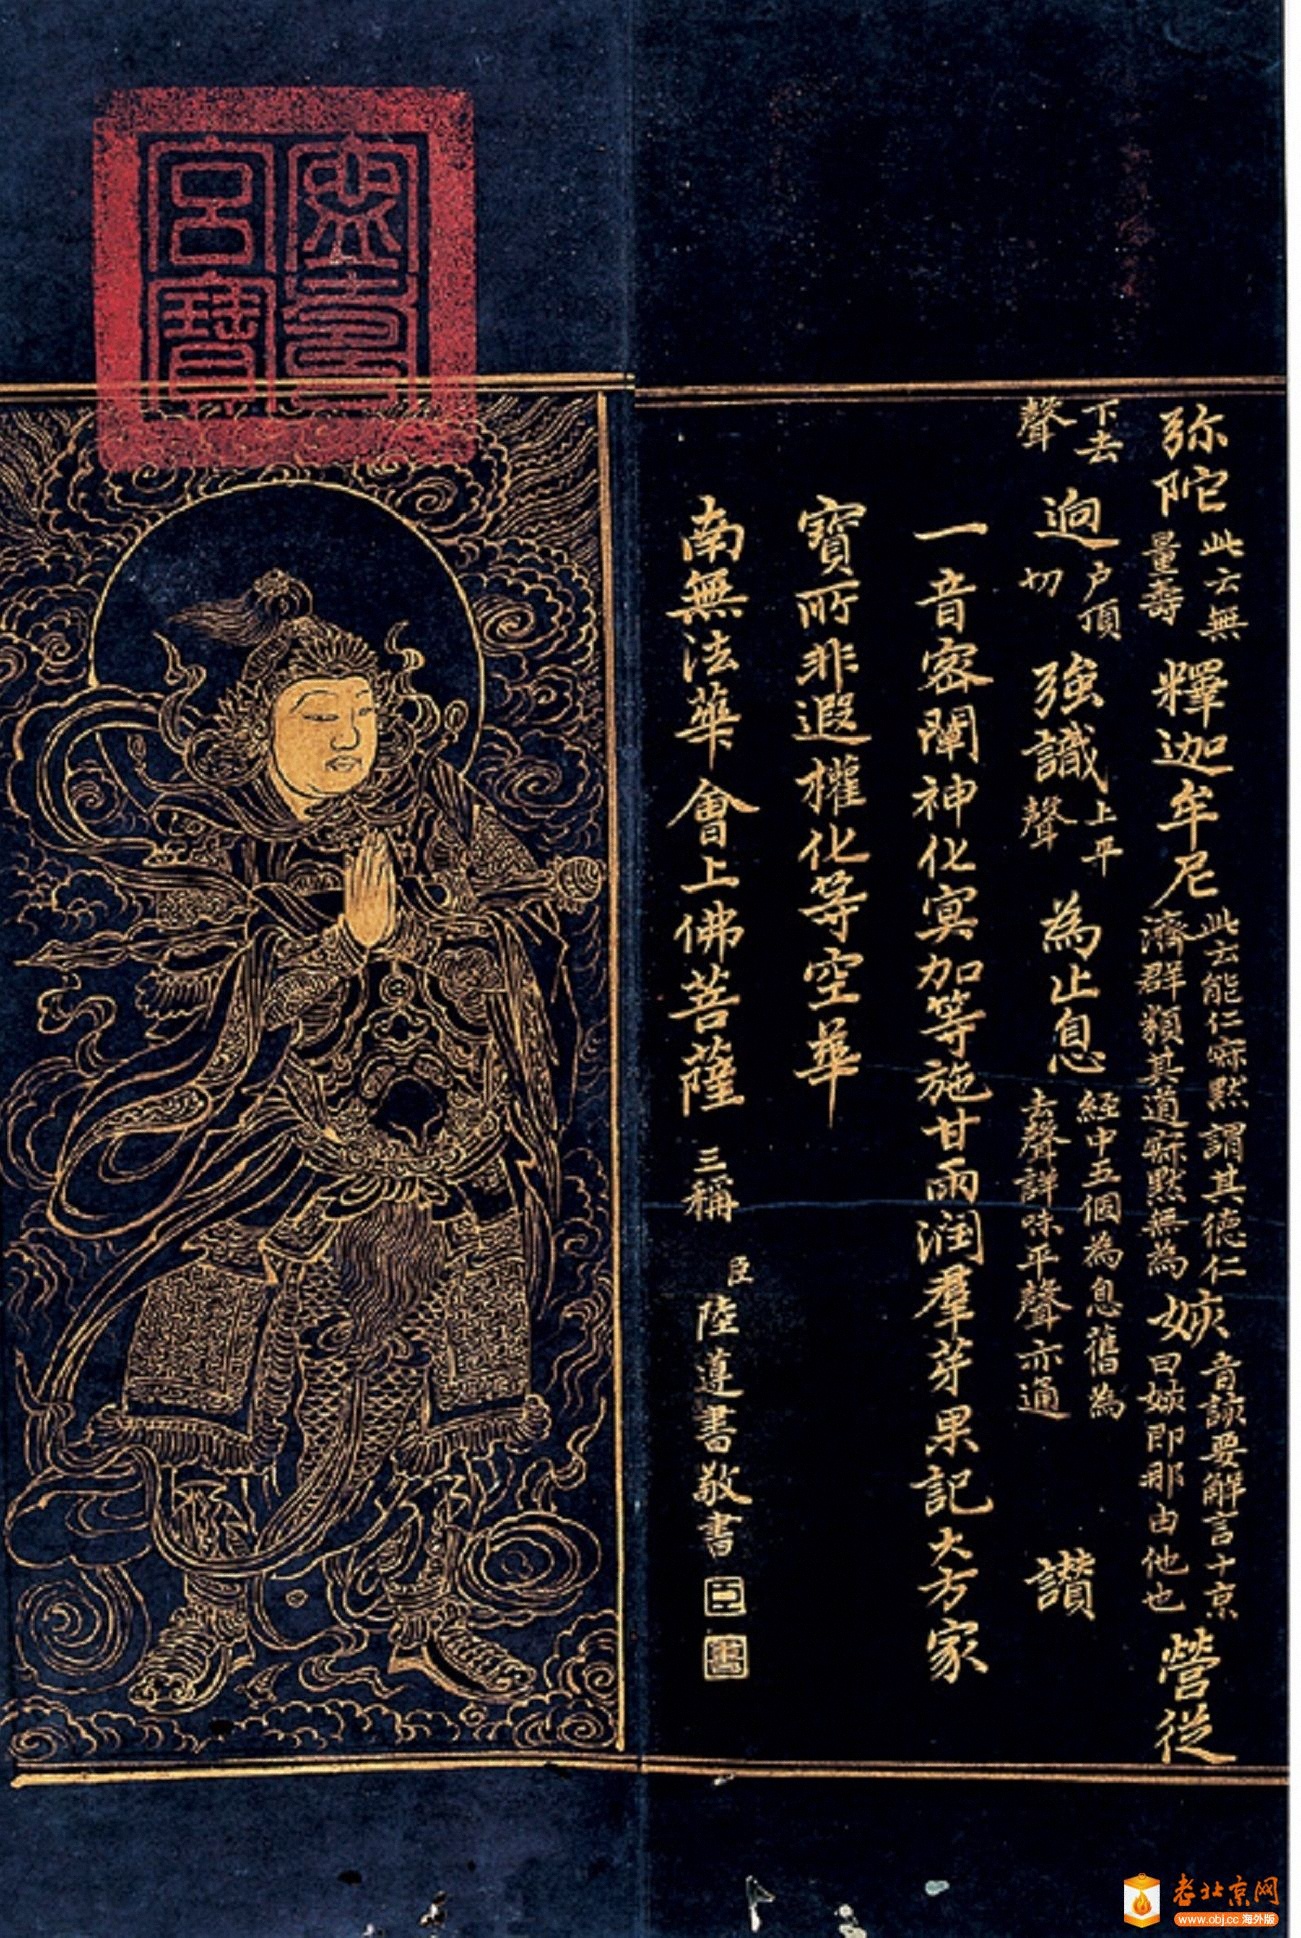 弥陀此云無量壽釋迦牟尼此云能仁寂默謂其德仁濟群類其道寂默無為姟音該要解言十京曰姟即那由他也營從
下去聲逈户頂切強識上平聲為止息經中五個為息舊為去聲詳味平聲亦通 讃
一音密闡神化冥加等施甘雨润羣芽果記大方家
寶所非遐權化等空華
南無法華會上佛菩薩 三稱 臣陸遵書敬書
宮寶
老北京网
www.obj.cc 海外版